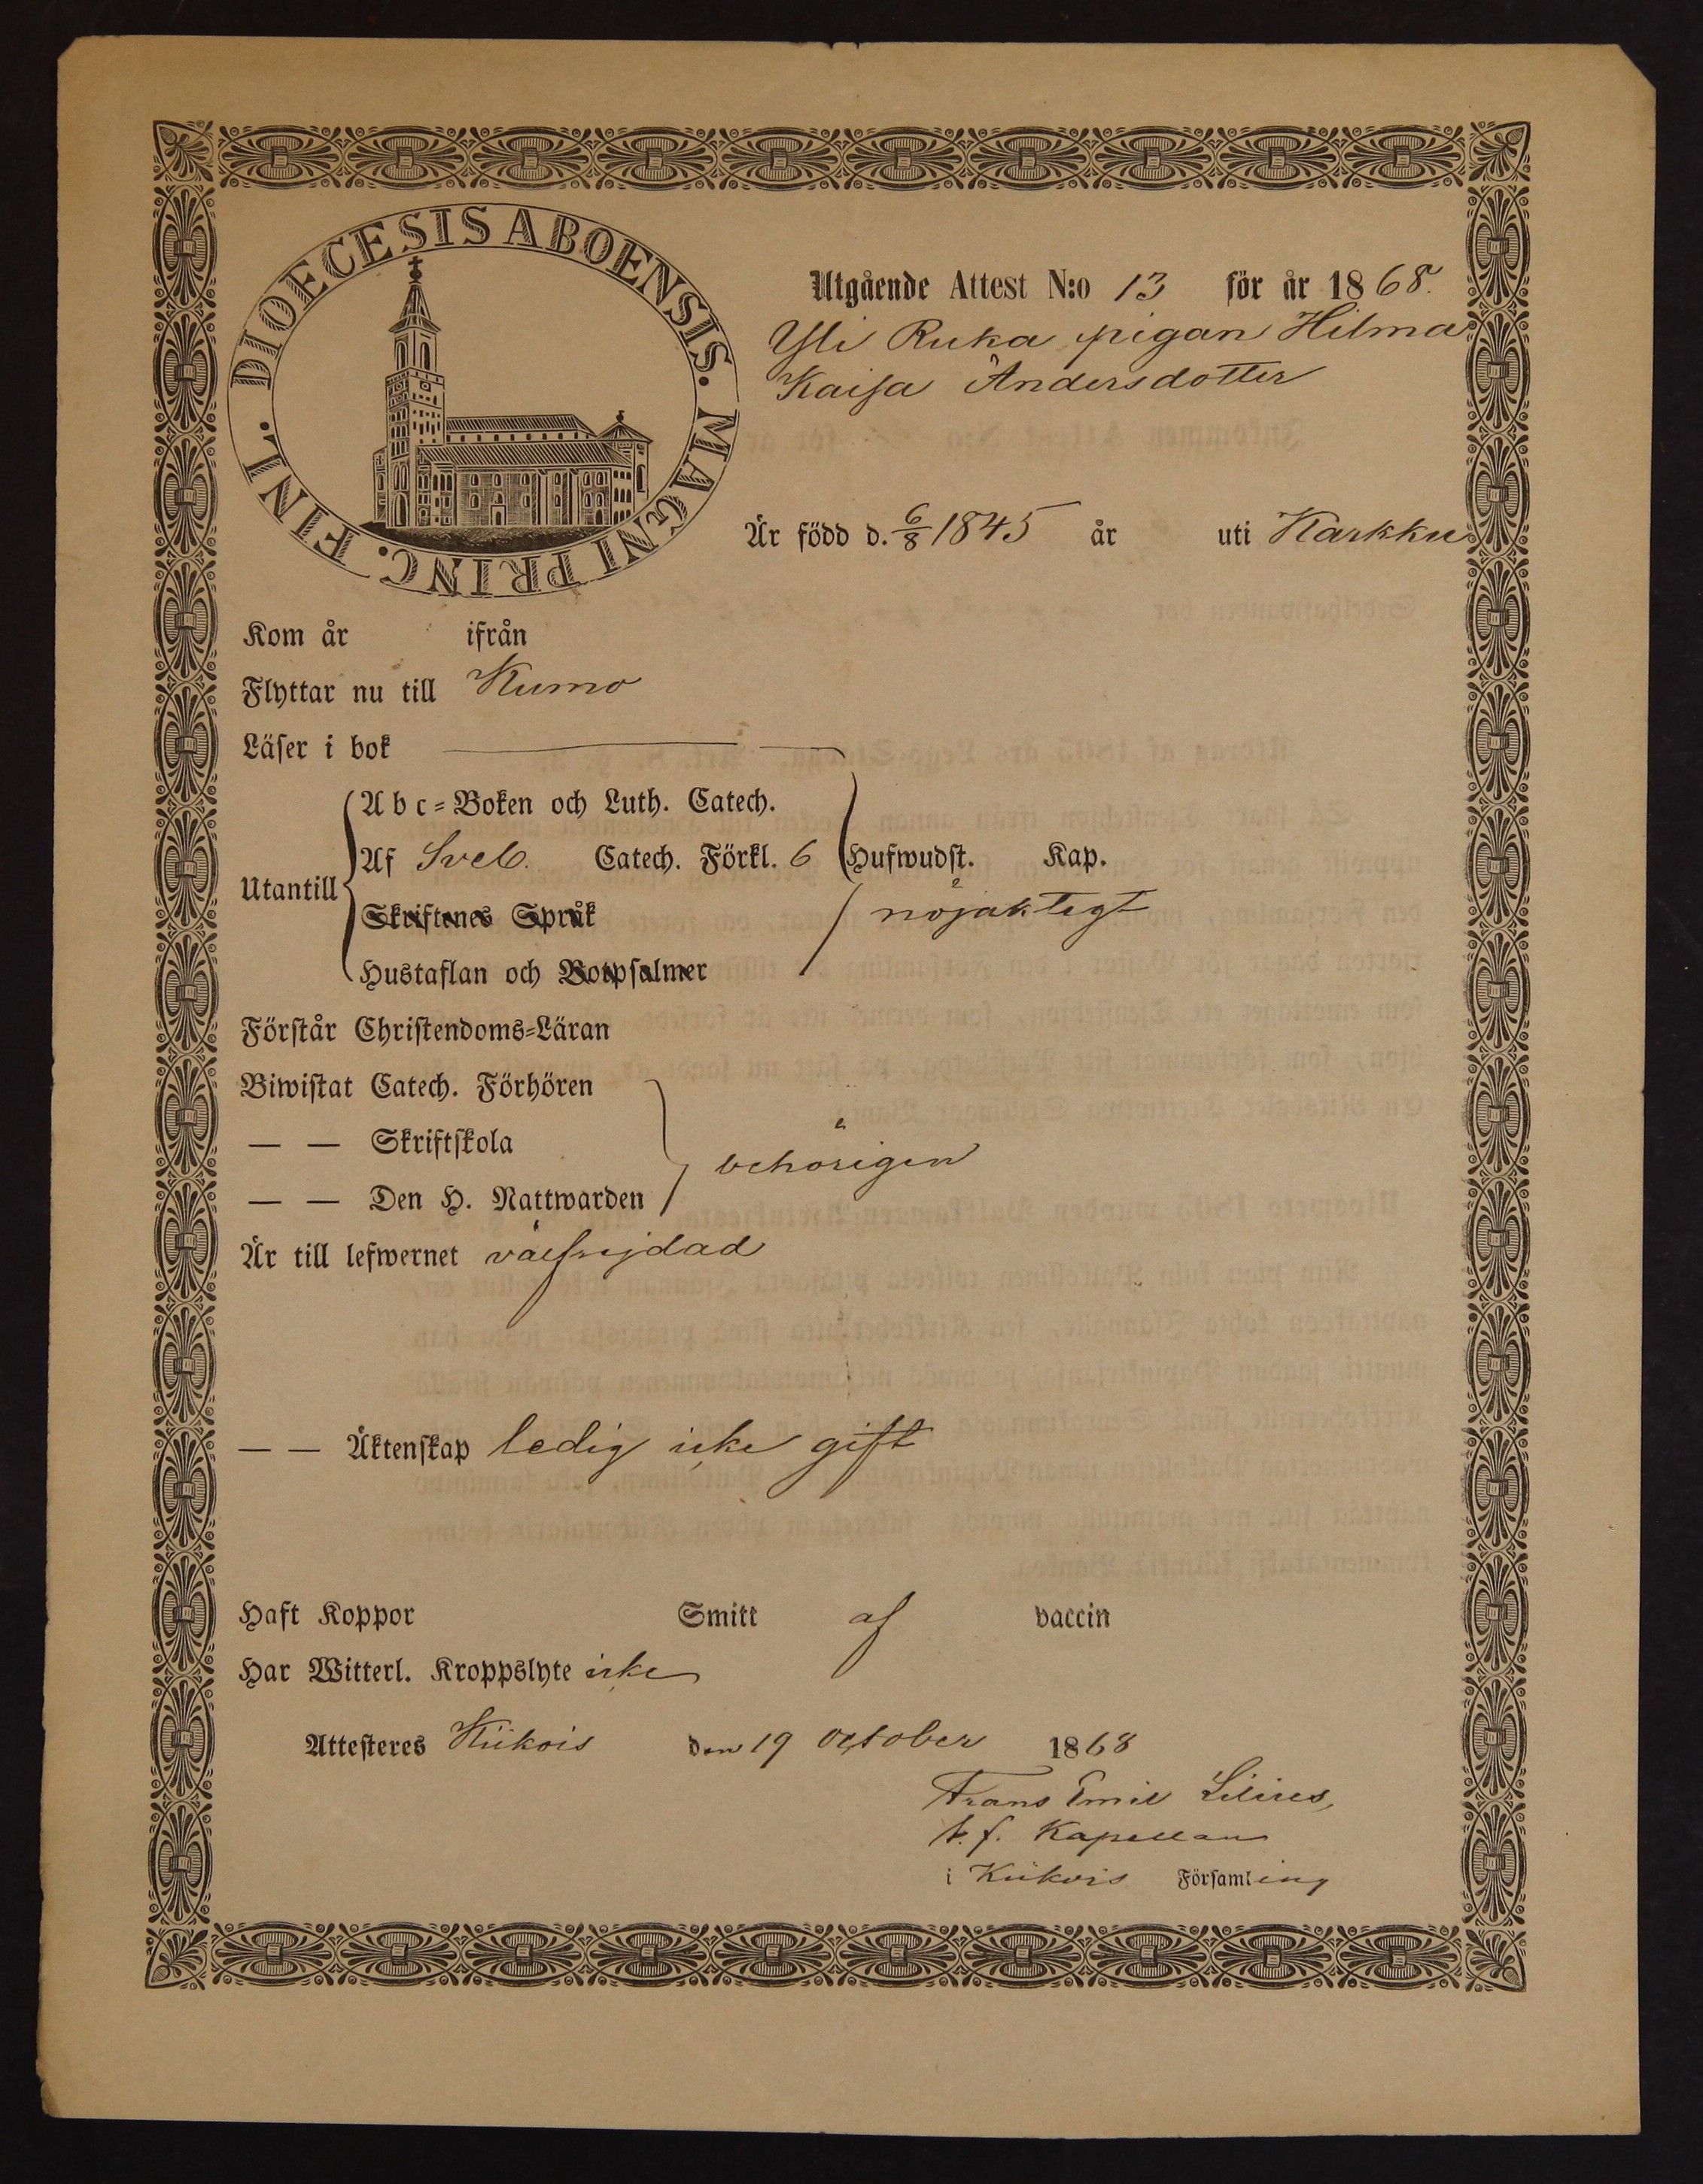 DIOECESIS ABOENSIS. MAGNI PRINC. FINL.
Utgående Attest N:o 13 för år 1868.
Yli Ruka pigan Hilma
Kaisa Andersdotter
Är född d. 6/8 1845 år uti Karkku
Kom år ifrån
Flyttar nu till Kumo
Läser i bok
Utantill
Abc-Boken och Luth. Catech.
Af Sveb. Catech. Förkl. 6 Hufwudst. Kap.
Skriftenes Språk nöjaktigt
Hustaflan och Botpsalmer
Förstår Christendoms-Läran
Biwistat Catech. Förhören
— — Skriftskola
behörigen
— — Den H. Nattwarden
Är till lefwernet välfrejdad
— — Äktenskap ledig icke gift
Haft Koppor Smitt af vaccin
Har Witterl. Kroppslyte icke
Attesteres Kiikois den 19 October 1868
Frans Emil Lilius,
t. f. Kapellan
i Kiikois Församling